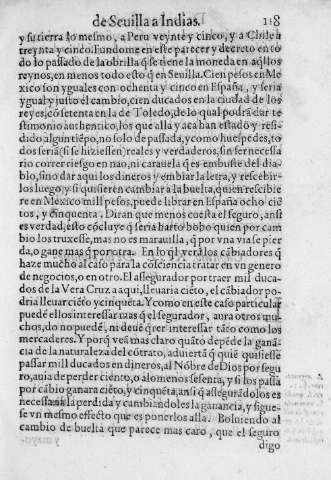 de Seuilla a Indias. 218
y su tierra lo mesmo, a Peru veynte y cinco, y a Chile a
treynta y cinco. Fundome en este parecer y decreto en to
do lo passado de la obrilla q̃ se tiene la moneda en aq̃llos
reynos, en menos todo esto q̃ en Seuilla. Cien pesos en Me
xico son yguales con ochenta y cinco en España, y seria
ygual y justo el cambio, cien ducados en la ciudad de los
reyes, cõ setenta en la de Toledo, de lo qual podrã dar te
stimonio authentico, los que alla y aca han estado y resi-
dido algun tiẽpo, no solo de passada, y como huespedes, to
dos seriã (si se hiziessen) reales y verdaderos, sin ser necessa
rio correr riesgo en nao, ni carauela q̃ es embuste del dia-
blo, sino dar aqui los dineros y embiar la letra, y rescebir-
los luego: y si quisieren cambiar a la buelta, quien rescibie
re en Mexico mill pesos, puede librar en España ocho ciẽ
tos, y cinquenta. Diran que menos cuesta el seguro, anst
es verdad, esto cõcluye q̃ seria harto bobo quien por cam
bio los truxesse, mas no es marauilla, q̃ por vna via se pier
da, o gane mas q̃ por otra. En lo q̃l verã los cãbiadores q̃
haze mucho al caso para la cõsciencia tratar en vn genero
de negocios, o en otro. El assegurador por traer mil duca-
dos de la Vera Cruz a aqui, lleuaria ciẽto, el cãbiador po-
dria lleuar ciẽto y cinquẽta. Y como en este caso particular
puedẽ ellos interessar mas q̃ el segurador, aura otros mu-
chos, do no puedẽ, ni deuẽ q̃rer interessar tãto como los
mercaderes. Y porq̃ vea mas claro quãto depẽde la ganã-
cia de la naturaleza del cõtrato, aduiertã q̃ quiẽ quisiesse
passar mill ducados en dineros, al Nõbre de Dios por segu
ro, auia de perder ciẽnto, o a lo menos sesenta, y si los passa
por cãbio ganara ciẽto, y cinquẽta, ansi q̃ assegurãdolos es
necessaria la perdida y cambiãndoles la ganancia, y sigue-
se vn mesmo effecto que es ponerlos alla. Boluiendo al
cambio de buelta que parece mas caro, que el seguro
digo